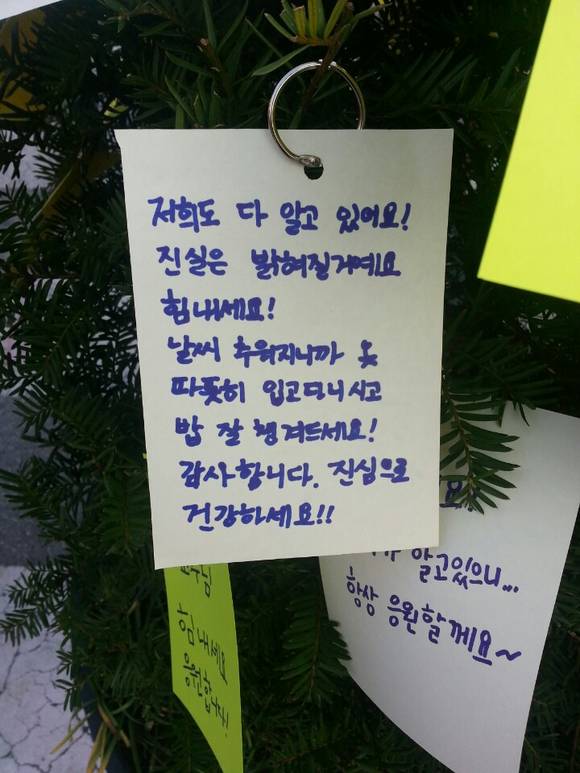 저희도 다 알고 있어요!
진실은 밝혀질거예요
힘내세요!
날씨 추워지니까 옷
따뜻히 입고다니시고
밥 잘 챙겨드세요!
감사합니다. 진심으로
건강하세요!!
알고있으니...
항상 응원할께요~
힘내세요
응원합니다!